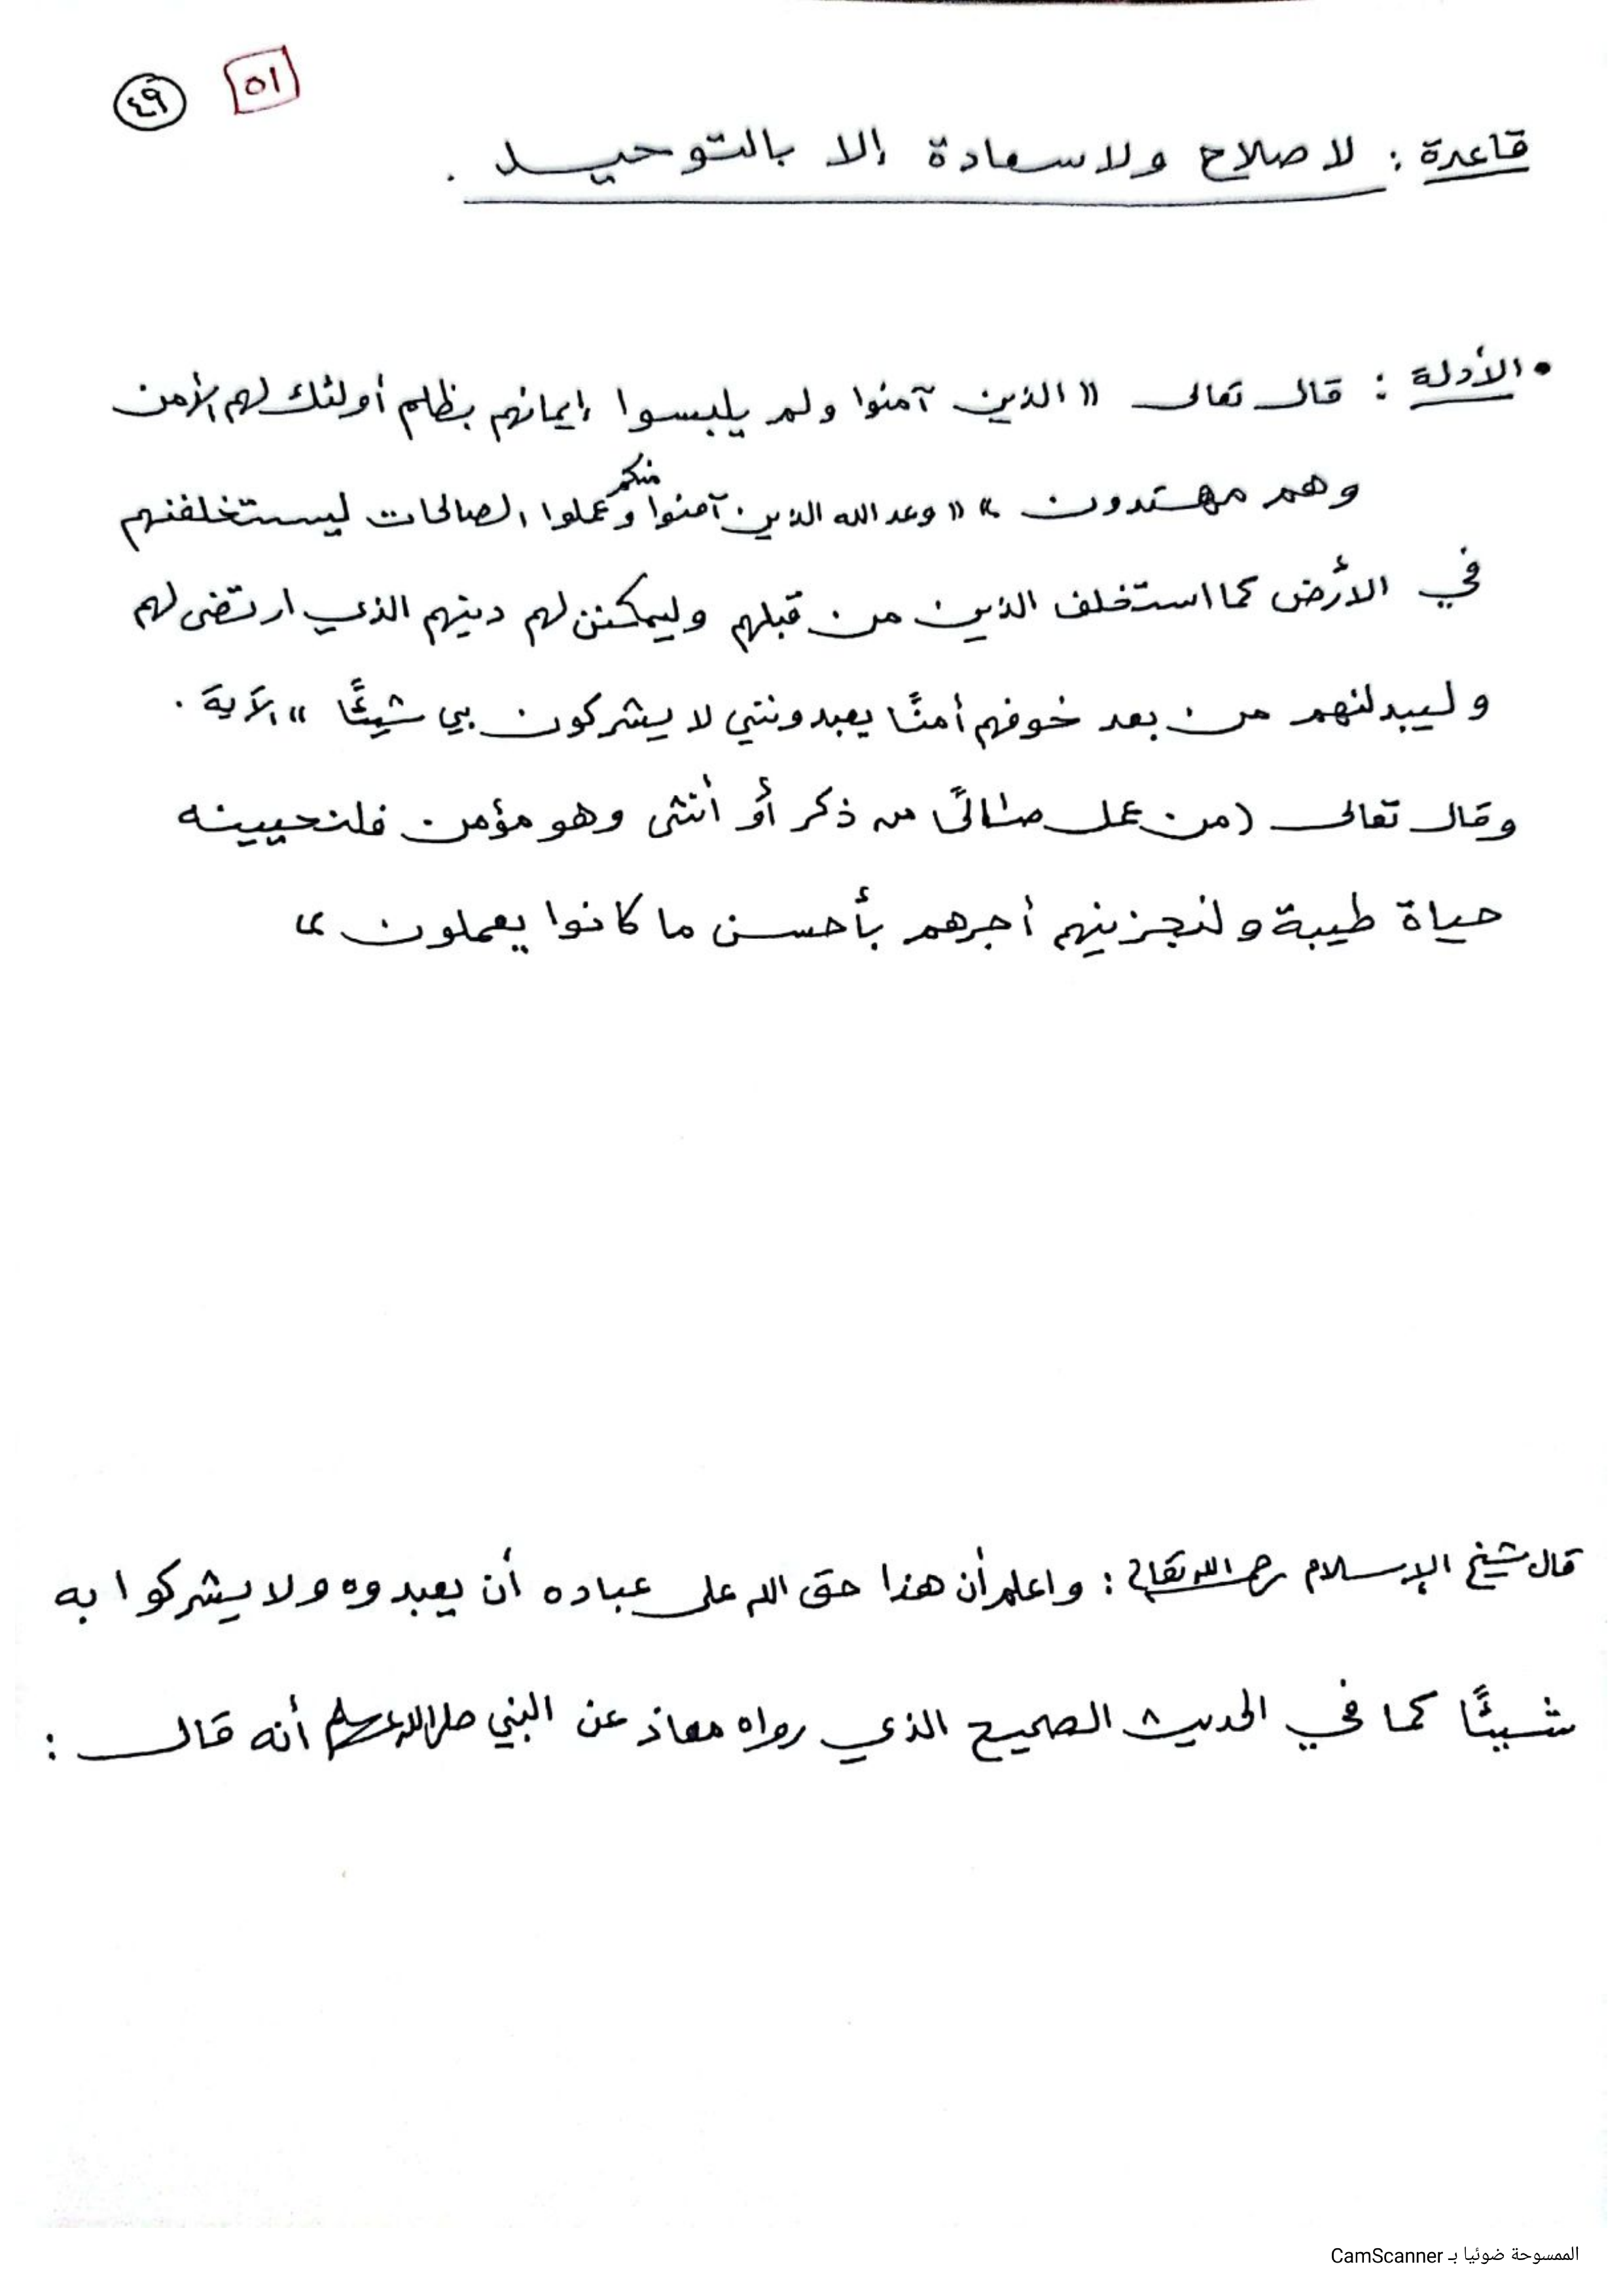 ٤٩ ٥١
قاعدة : لا صلاح ولا سعادة إلا بالتوحيد .
• الأدلة : قال تعالى (( الذين آمنوا ولم يلبسوا إيمانهم بظلم أولئك لهم الأمن
وهم مهتدون )) (( وعد الله الذين آمنوا منكم وعملوا الصالحات ليستخلفنهم
في الأرض كما استخلف الذين من قبلهم وليمكنن لهم دينهم الذي ارتضى لهم
وليبدلنهم من بعد خوفهم أمنًا يعبدونني لا يشركون بي شيئًا )) الآية .
وقال تعالى (من عمل صالحًا من ذكر أو أنثى وهو مؤمن فلنحيينه
حياة طيبة ولنجزينهم أجرهم بأحسن ما كانوا يعملون ))
قال شيخ الإسلام رحمه الله تعالى : واعلم أن هذا حق الله على عباده أن يعبدوه ولا يشركوا به
شيئًا كما في الحديث الصحيح الذي رواه معاذ عن النبي صلى الله عليه وسلم أنه قال :
الممسوحة ضوئيا بـ CamScanner